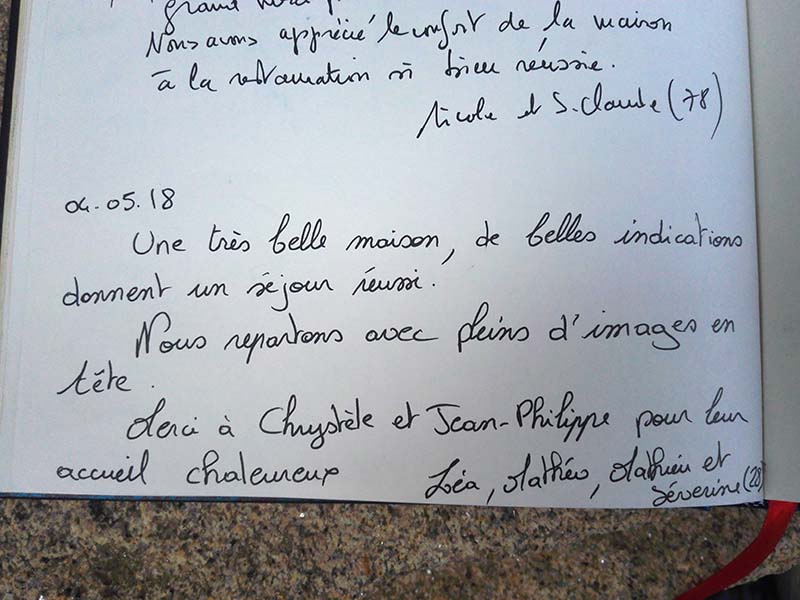 grand
Nous avons apprécié le confort de la maison
à la restauration si bien réussie.
Nicole et J. Claude (78)
04.05.18
Une très belle maison, de belles indications
donnent un séjour réussi.
Nous repartons avec pleins d'images en
tête.
Merci à Chrystèle et Jean-Philippe pour leur
accueil chaleureux
Léa, Mathéo, Mathieu et
Séverine (28)